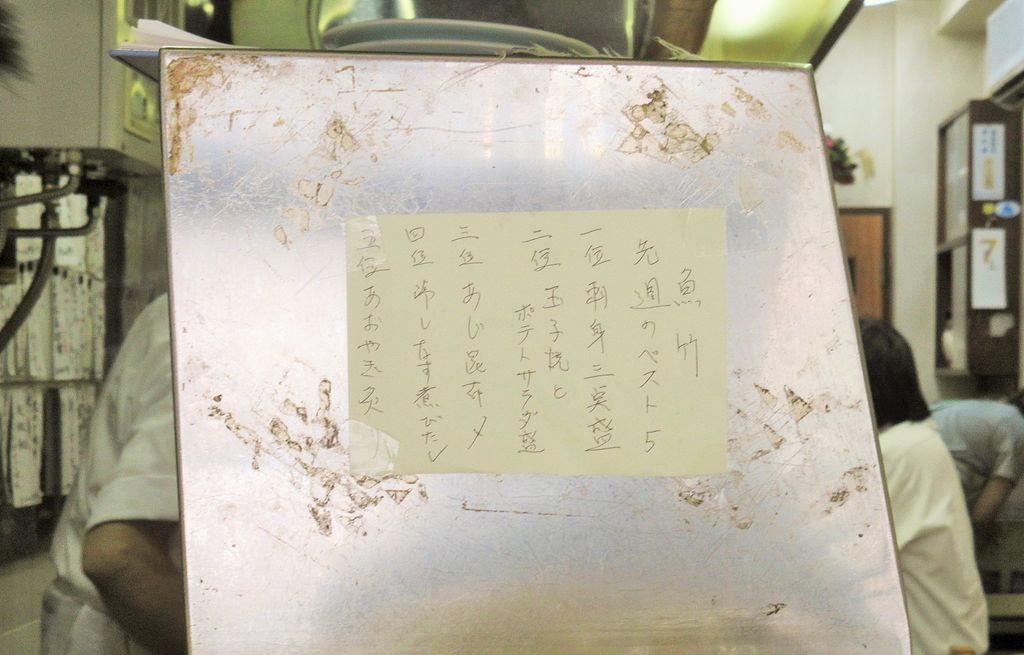 魚竹
先週のベスト5
一位 刺身二点盛
二位 玉子焼と
ポテトサラダ盛
三位 あじ昆布〆
四位 冷しなす煮びたし
五位 あおやぎ炙り